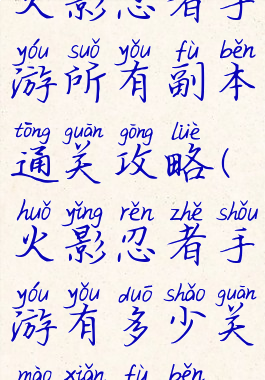 火影忍者手
yóu suǒ yǒu fù běn
游所有副本
tōng guān gōng lüè
通关攻略(
huǒ yǐng rěn zhě shǒu
火影忍者手
yóu yǒu duō shǎo guān
游有多少关
mào xiǎn fù běn